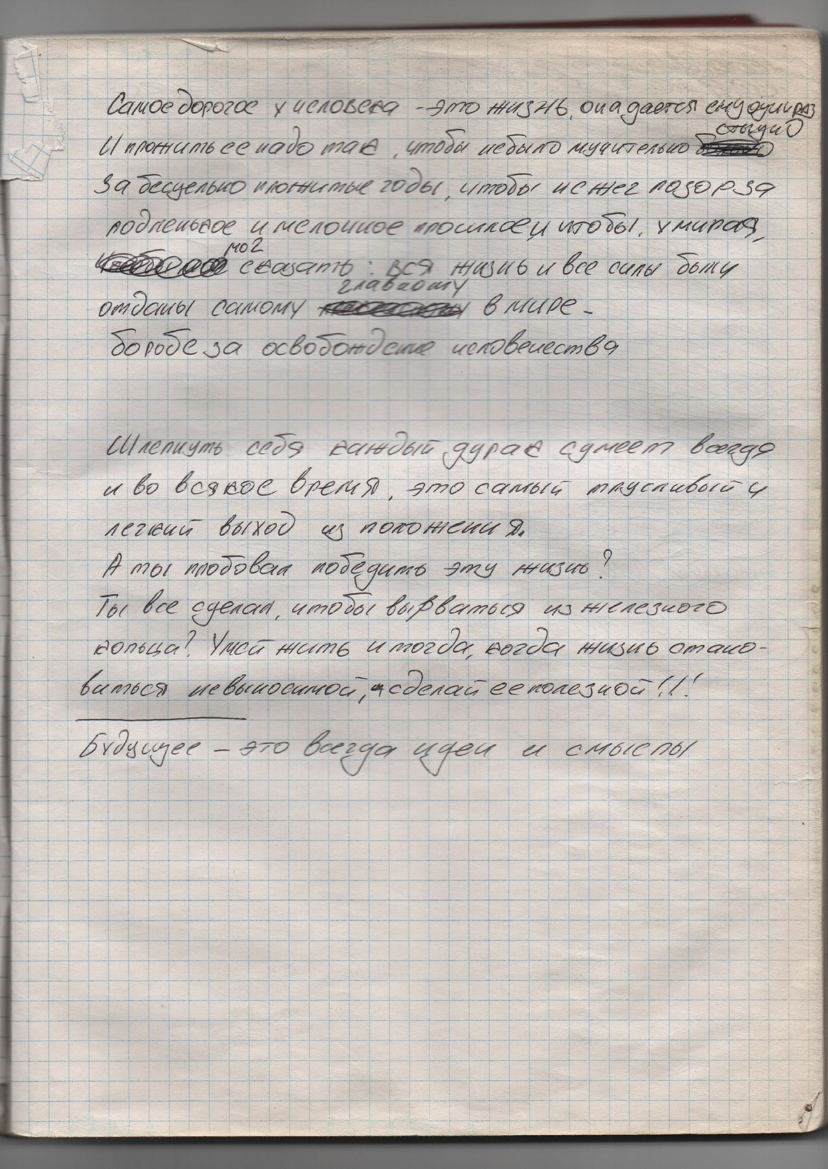 Самое дорогое у человека - это жизнь, она дается ему один раз
И прожить ее надо так, чтобы небыло мучительно стыдно
за бесцельно прожитые годы, чтобы не жег позор за
подленькое и мелочное прошлое, и чтобы, умирая,
мог сказать: вся жизнь и все силы были
отданы самому главному в мире -
борьбе за освобождение человечества
Шлепнуть себя каждый дурак сумеет всегда
и во всякое время, это самый трусливый и
легкий выход из положения.
А ты пробовал победить эту жизнь?
Ты все сделал, чтобы вырваться из железного
кольца? Умей жить и тогда, когда жизнь стано-
виться невыносимой, сделай ее полезной!!!
Будущее - это всегда идеи и смыслы